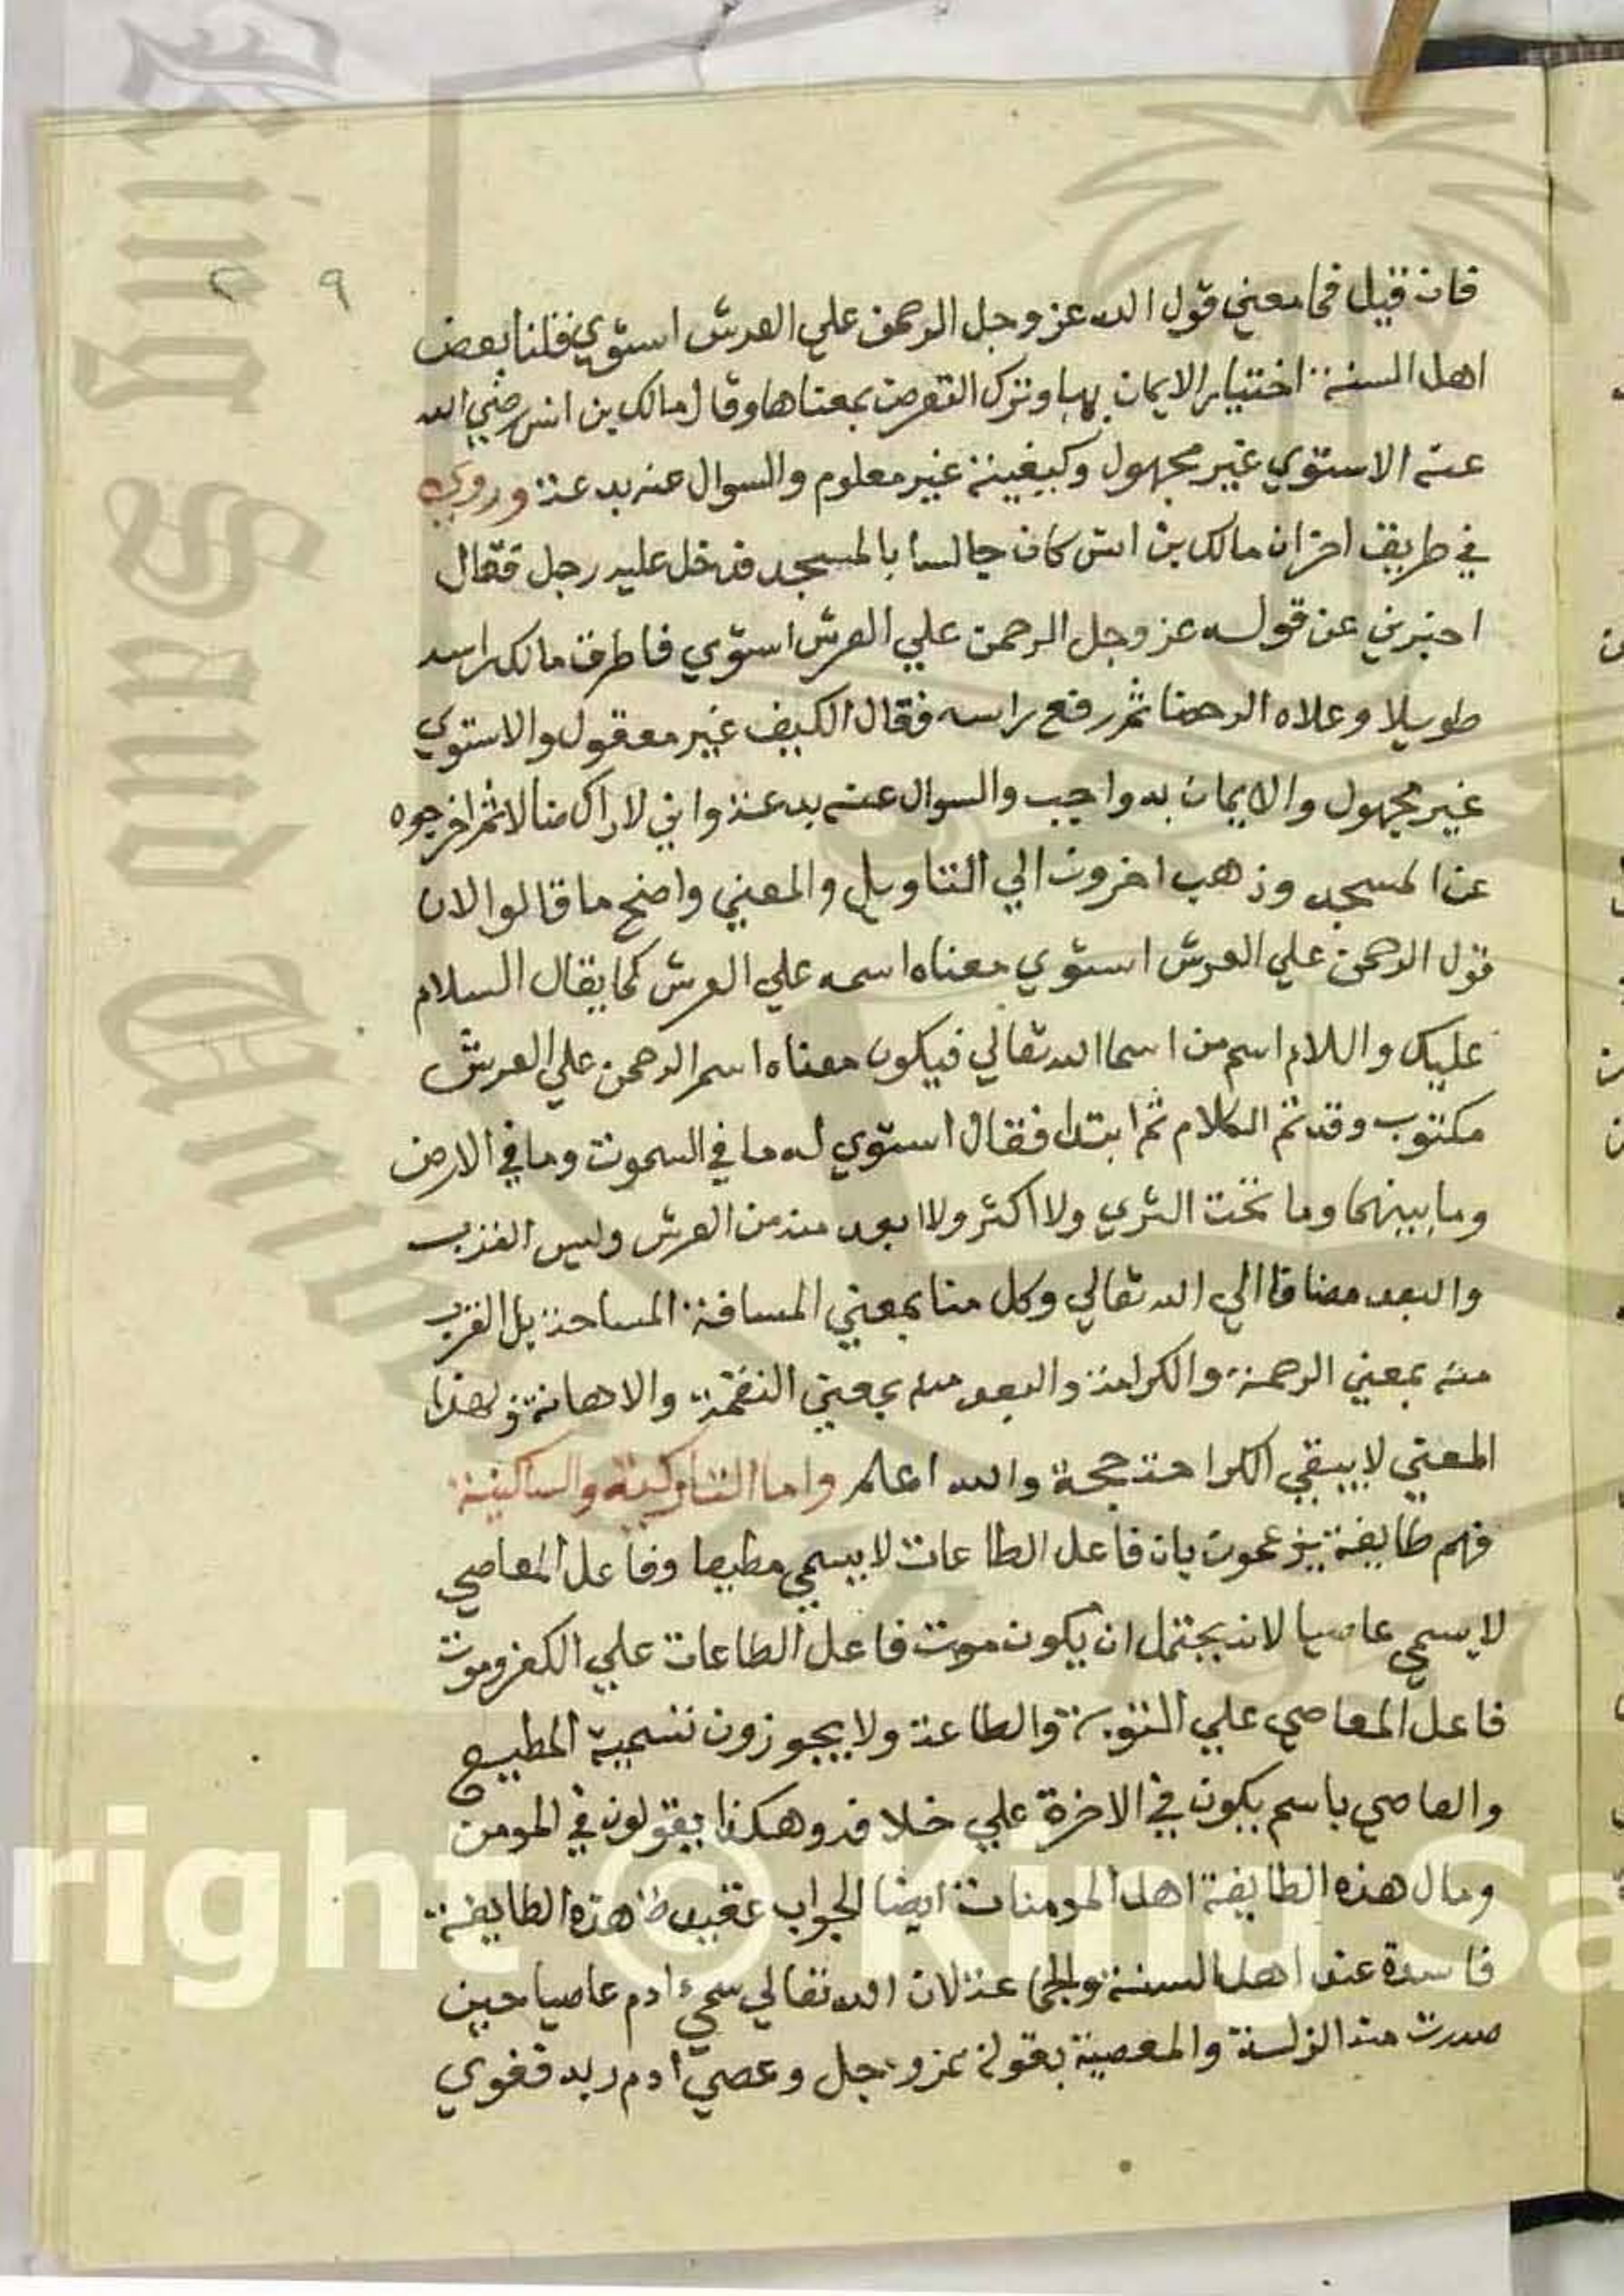 ٢ ٩
فان قيل فما معني قول الله عز وجل الرحمن علي العرش استوي قلنا بعض
اهل السنة اختيار الايمان بها وترك التعرض بمعناها وقال مالك بن انس رضي الله
عنه الاستوي غير مجهول وكيفيته غير معلوم والسوال عنه بدعة وروي
في طريق اخر ان مالك بن انس كان جالسا بالمسجد فدخل عليه رجل فقال
اخبرني عن قوله عز وجل الرحمن علي العرش استوي فاطرق مالك راسه
طويلا وعلاه الرحضا ثم رفع راسه فقال الكيف غير معقول والاستوي
غير مجهول والايمان به واجب والسوال عنه بدعة واني لاراك ضالا ثم اخرجوه
عن المسجد وذهب اخرون الي التاويل والمعني واضح ما قالوا لان
قول الرحمن علي العرش استوي معناه اسمه علي العرش كما يقال السلام
عليك واللام اسم من اسما الله تعالي فيكون معناه اسم الرحمن علي العرش
مكتوب وقد تم الكلام ثم ابتدا فقال استوي له ما في السموت وما في الارض
وما بينهما وما تحت الثري ولا اكثر ولا ابعد منه من العرش وليس القرب
والبعد مضافا الي الله تعالي وكل منا بمعني المسافة المساحة بل القرب
منه بمعني الرحمة والكرامة والبعد منه بمعني النقمة والاهانة ولهذا
المعني لا يبقي الكرامة حجة والله اعلم واما التاركية والساكنية
فهم طايفة يزعمون بان فاعل الطاعات لا يسمي مطيعا وفاعل المعاصي
لا يسمي عاصيا لانه يحتمل ان يكون موت فاعل الطاعات علي الكفر وموت
فاعل المعاصي علي التوبة والطاعة ولا يجوزون تسمية المطيع
والعاصي باسم يكون في الاخرة علي خلافه وهكذا يقولون في المومن
ومال هذه الطايفة اهل المومنات ايضا الجواب عقيدة هذه الطايفة
فاسدة عند اهل السنة والجماعة لان الله تعالي سمي ادم عاصيا حين
صدرت منه الزلة والمعصية بقوله عز وجل وعصي ادم ربه فغوي